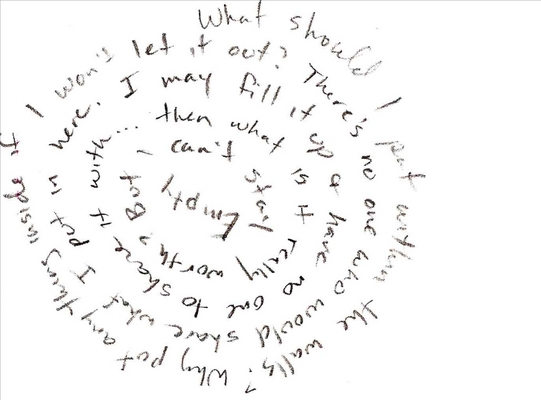 What should I put within the walls? Why put anything inside if
I won't let it out? There's no one who would share what I put in
here. I may fill it up & have no one to share it
with... then what is it really worth? But
I can't stay
Empty